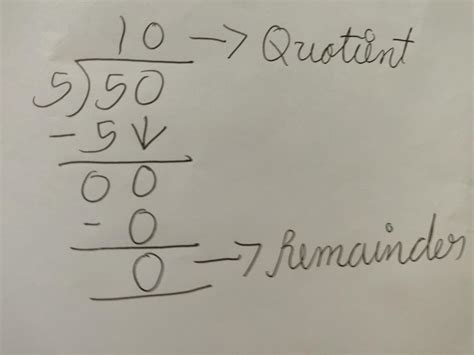 10 → Quotient
5)50
-5↓
00
-0
0 → Remainder